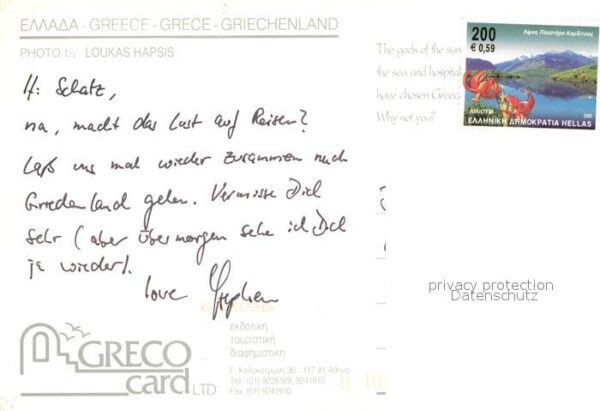 ΕΛΛΑΔΑ - GREECE - GRECE - GRIECHENLAND
PHOTO by LOUKAS HAPSIS
Hi Schatz,
na, macht das Lust auf Reisen?
Laß uns mal wieder zusammen nach
Griechenland gehen. Vermisse Dich
sehr (aber übermorgen sehe ich Dich
ja wieder).
love Stephen
The gods of the sun
the sea and hospital
have chosen Greec
Why not you?
200
€ 0,59
Λίμνη Πλαστήρα Καρδίτσας
2001
ΕΛΛΗΝΙΚΗ ΔΗΜΟΚΡΑΤΙΑ HELLAS
privacy protection
Datenschutz
GRECO
card LTD
εκδοτική
τουριστική
διαφημιστική
Γ. Κολοκοτρώνη 36 - 117 41 Αθήνα
Τηλ. (01) 9228169, 9241910
Fax. (01) 9241910